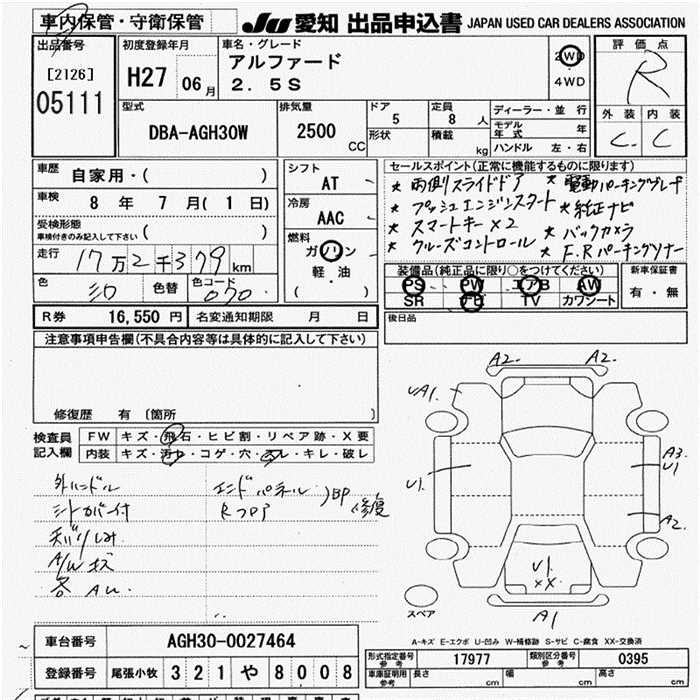 車内保管・守衛保管
JU 愛知 出品申込書 JAPAN USED CAR DEALERS ASSOCIATION
出品番号
[2126]
05111
初度登録年月
H27 06月
車名・グレード
アルファード
2.5S
2WD
4WD
評価点
R
外装 内装
C C
型式
DBA-AGH30W
排気量
2500 CC
ドア
5
形状
定員
8 人
積載
kg
ディーラー・並行
モデル年式 年
ハンドル 左・右
車歴
自家用・( )
車検
8 年 7 月( 1 日)
受検形態
車検付きのみ記入して下さい ( )
走行
17万2千379 km
色
色替
色コード
070
シフト
AT
冷房
AAC
燃料
ガソリン
軽・油
( )
セールスポイント(正常に機能するものに限ります)
★ 両側スライドドア ★ 電動パーキングブレーキ
★ プッシュエンジンスタート ★ 純正ナビ
★ スマートキー×2 ★ バックカメラ
★ クルーズコントロール ★ F.Rパーキングソナー
装備品(純正品に限り○をつけてください)
PS PW エアB AW
SR ナビ TV カワシート
新車保証書
有・無
R券 16,550 円 名変通知期限 月 日
後日品
注意事項申告欄(不具合内容等は具体的に記入して下さい)
修復歴 有 〔箇所
検査員記入欄
FW キズ・飛石・ヒビ割・リペア跡・X要
内装 キズ・汚レ・コゲ・穴・スレ・キレ・破レ
外ハンドル
エンドパネル
Rフロア
BP 修復
A/W キズ
各 AU
A2. A2.
UA1.
U1.
A3
U1
A2
U1
XX
A1
スペア
A-キズ E-エクボ U-凹み W-補修跡 S-サビ C-腐食 XX-交換済
車台番号 AGH30-0027464
登録番号 尾張小牧 321 や 8008
形式指定番号 参考 17977
類別区分番号 参考 0395
車庫証明用 参考 長さ cm 幅 cm 高さ cm